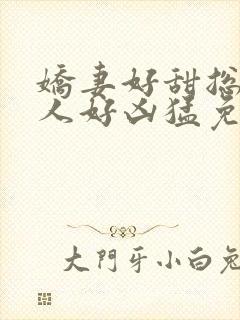 嬌妻好甜
人好凶猛免
大門牙小白兔